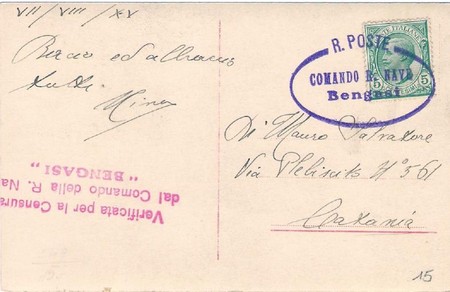 VII / VIII / XV
Bacio ed abbraccio
tutti
Nino
R. POSTE
COMANDO R. NAVE
Bengasi
POSTE ITALIANE
5 5
Di Mauro Salvatore
Via Plebiscito N° 561
Catania
Verificata per la Censura
dal Comando della R. Na
"BENGASI"
15